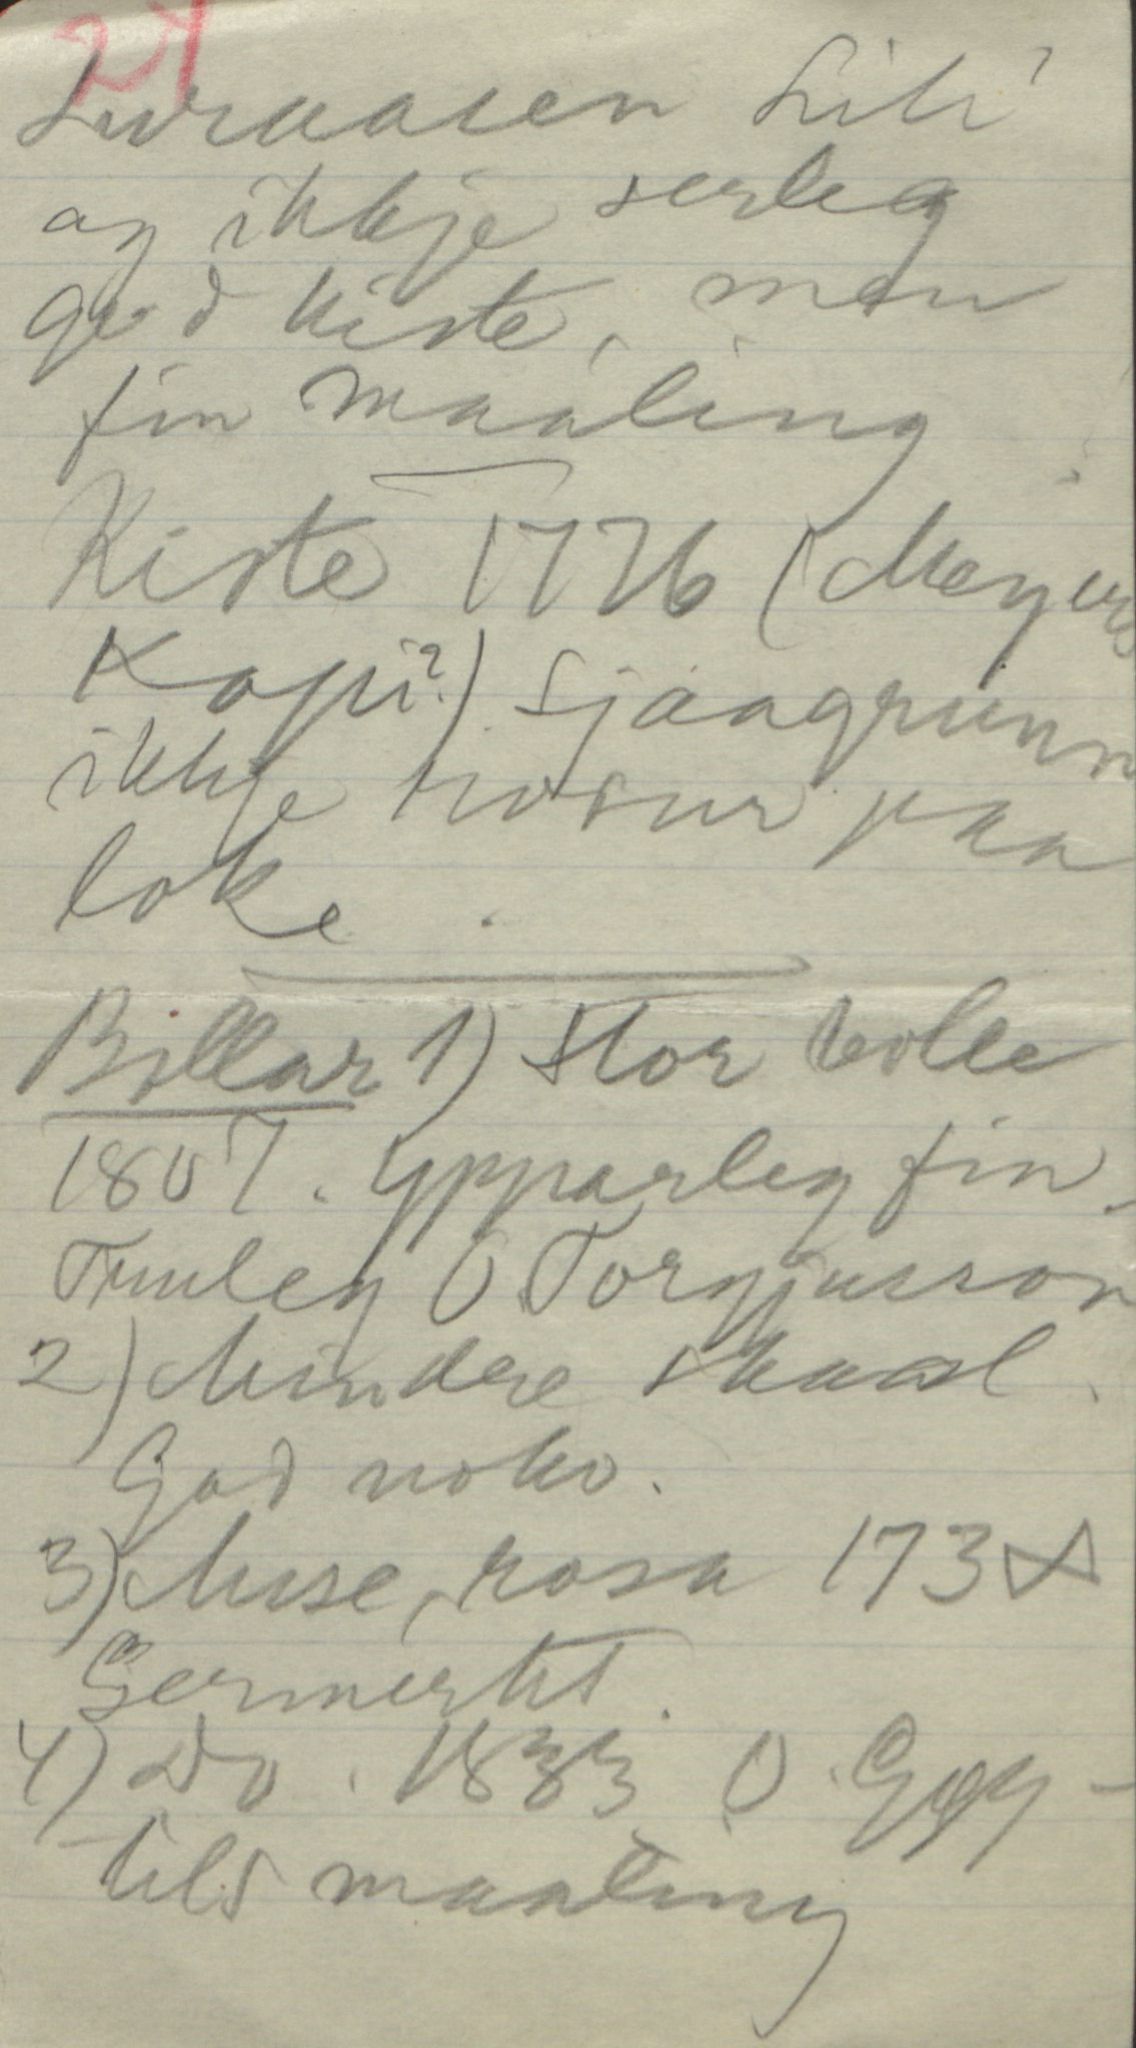 24
Luraasen Liti
og ikkje serleg
god kiste, men
fin maaling
Kiste 1776 (Meyers
Kopi?) Sjaagrunn
ikkje rosur paa
loke.
Bollar 1) Stor bolle
1807. Ypparleg fin.
Truleg O Torgjusson
2) Mindre skaal.
God noko.
3) Mise, rosa 173
Sermerkt.
4) Do. 1833 O.
tils maaling